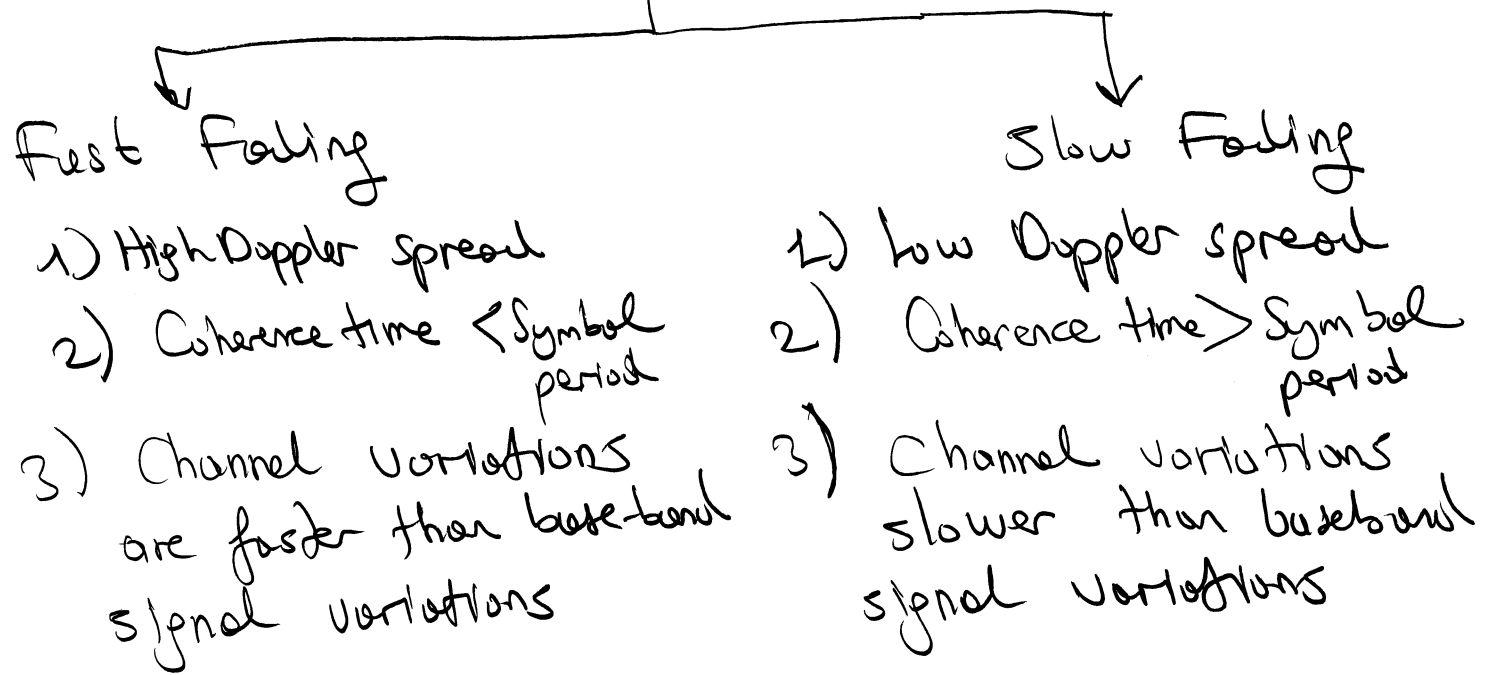 Fast Fading
1) High Doppler spread
2) Coherence time < Symbol
period
3) Channel variations
are faster than base-band
signal variations
Slow Fading
1) Low Doppler spread
2) Coherence time > Symbol
period
3) Channel variations
slower than baseband
signal variations